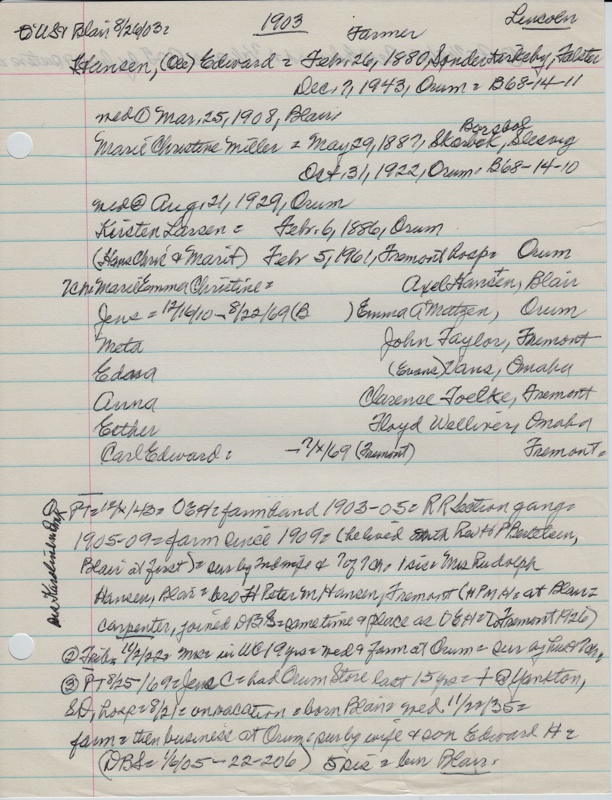 D'US & Blair 8/26/03 = 1903 Farmer Lincoln
Hansen, (Ole) Edward = Feb. 26, 1880, Sonderkirkeby, Falster
Dec. ?, 1943, Orum = B68-14-11
med ① Mar. 25, 1908, Blair
Borsbøl
Marie Christine Miller = May 29, 1887, Skærbæk, Slesvig
Oct. 31, 1922, Orum = B68-14-10
med ② Aug. 21, 1929, Orum
Kirsten Larsen = Feb. 6, 1886, Orum
(Hans Chri & Marit) Feb 5, 1961, Fremont hosp = Orum
7 ch: Marie Emma Christine = Axel Hansen, Blair
Jens = 12/16/10 - 8/22/69 (B ) Emma A Matzen, Orum
Meta John Taylor, Fremont
Edna (Evans) Vans, Omaha
Anna Clarence Toelke, Fremont
Esther Floyd Welliver, Omaha
Carl Edward = -?/x/69 (Fremont) Fremont =
① PT = 12/x/43 = OEH = farmhand 1903-05 = RR section gang =
1905-09 = farm since 1909 = (he lived with Rev H P Bertelsen,
Blair at first) = sur by 2nd wife & 7 of 7 ch = 1 sis = Mrs Rudolph
Hansen, Blair = bro H Peter M Hansen, Fremont (HPMH = at Blair =
carpenter, joined DBS = same time & place as OEH = to Fremont 1926)
② Trib = 11/2/22 = MSC = in US 19 yrs = med & farm at Orum = sur by hus & 7 ch.
③ PT 8/25/69 = Jens C = had Orum Store last 15 yrs = † @ Yankton,
SD, hosp = 8/21 = on vacation = born Blair = med 11/20/35 =
farm = then business at Orum = sur by wife & son Edward H =
(DBS = 1/6/05 - 22-206) 5 sis = bur Blair.